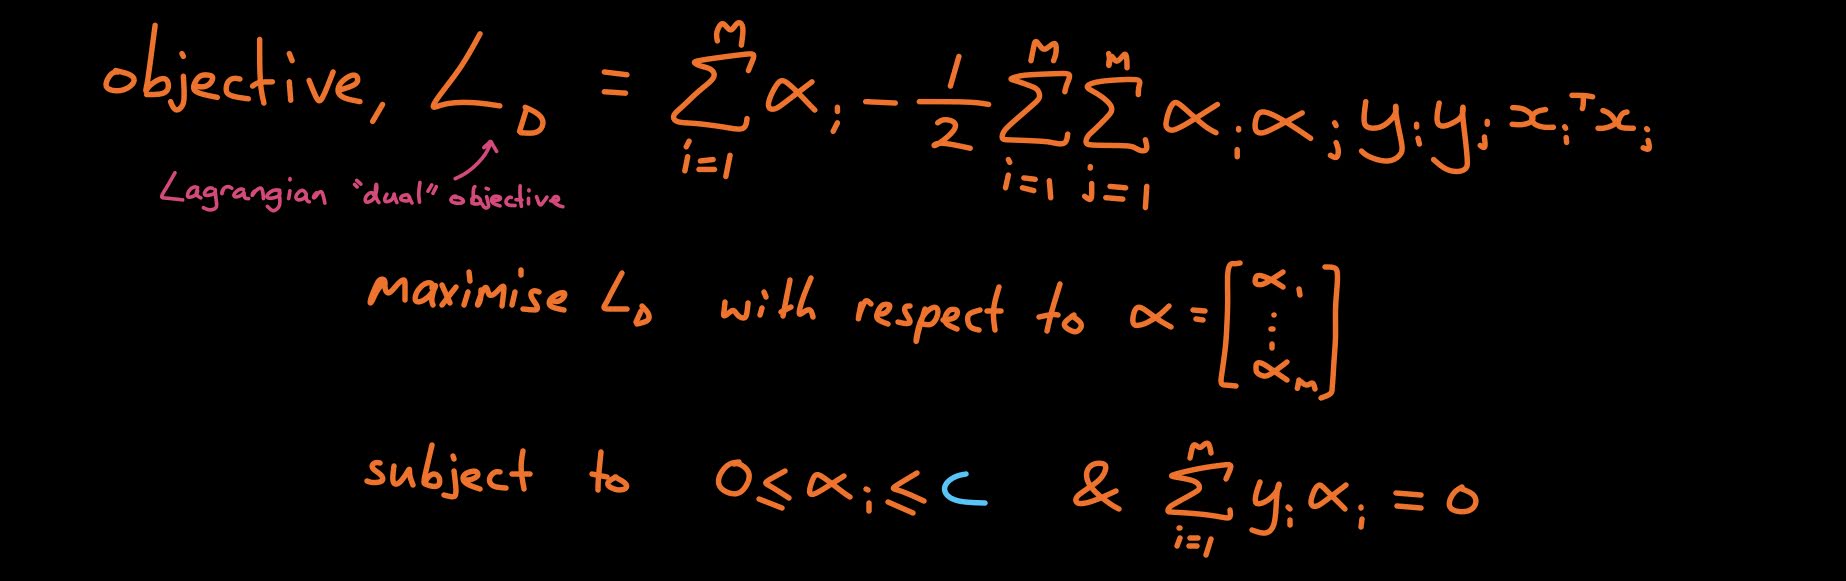 objective, L_D = ∑_{i=1}^{m} α_i - 1/2 ∑_{i=1}^{m} ∑_{j=1}^{m} α_i α_j y_i y_j x_i^T x_j
Lagrangian "dual" objective
maximise L_D with respect to α = [α_1 ⋮ α_m]
subject to 0 ≤ α_i ≤ C & ∑_{i=1}^{m} y_i α_i = 0